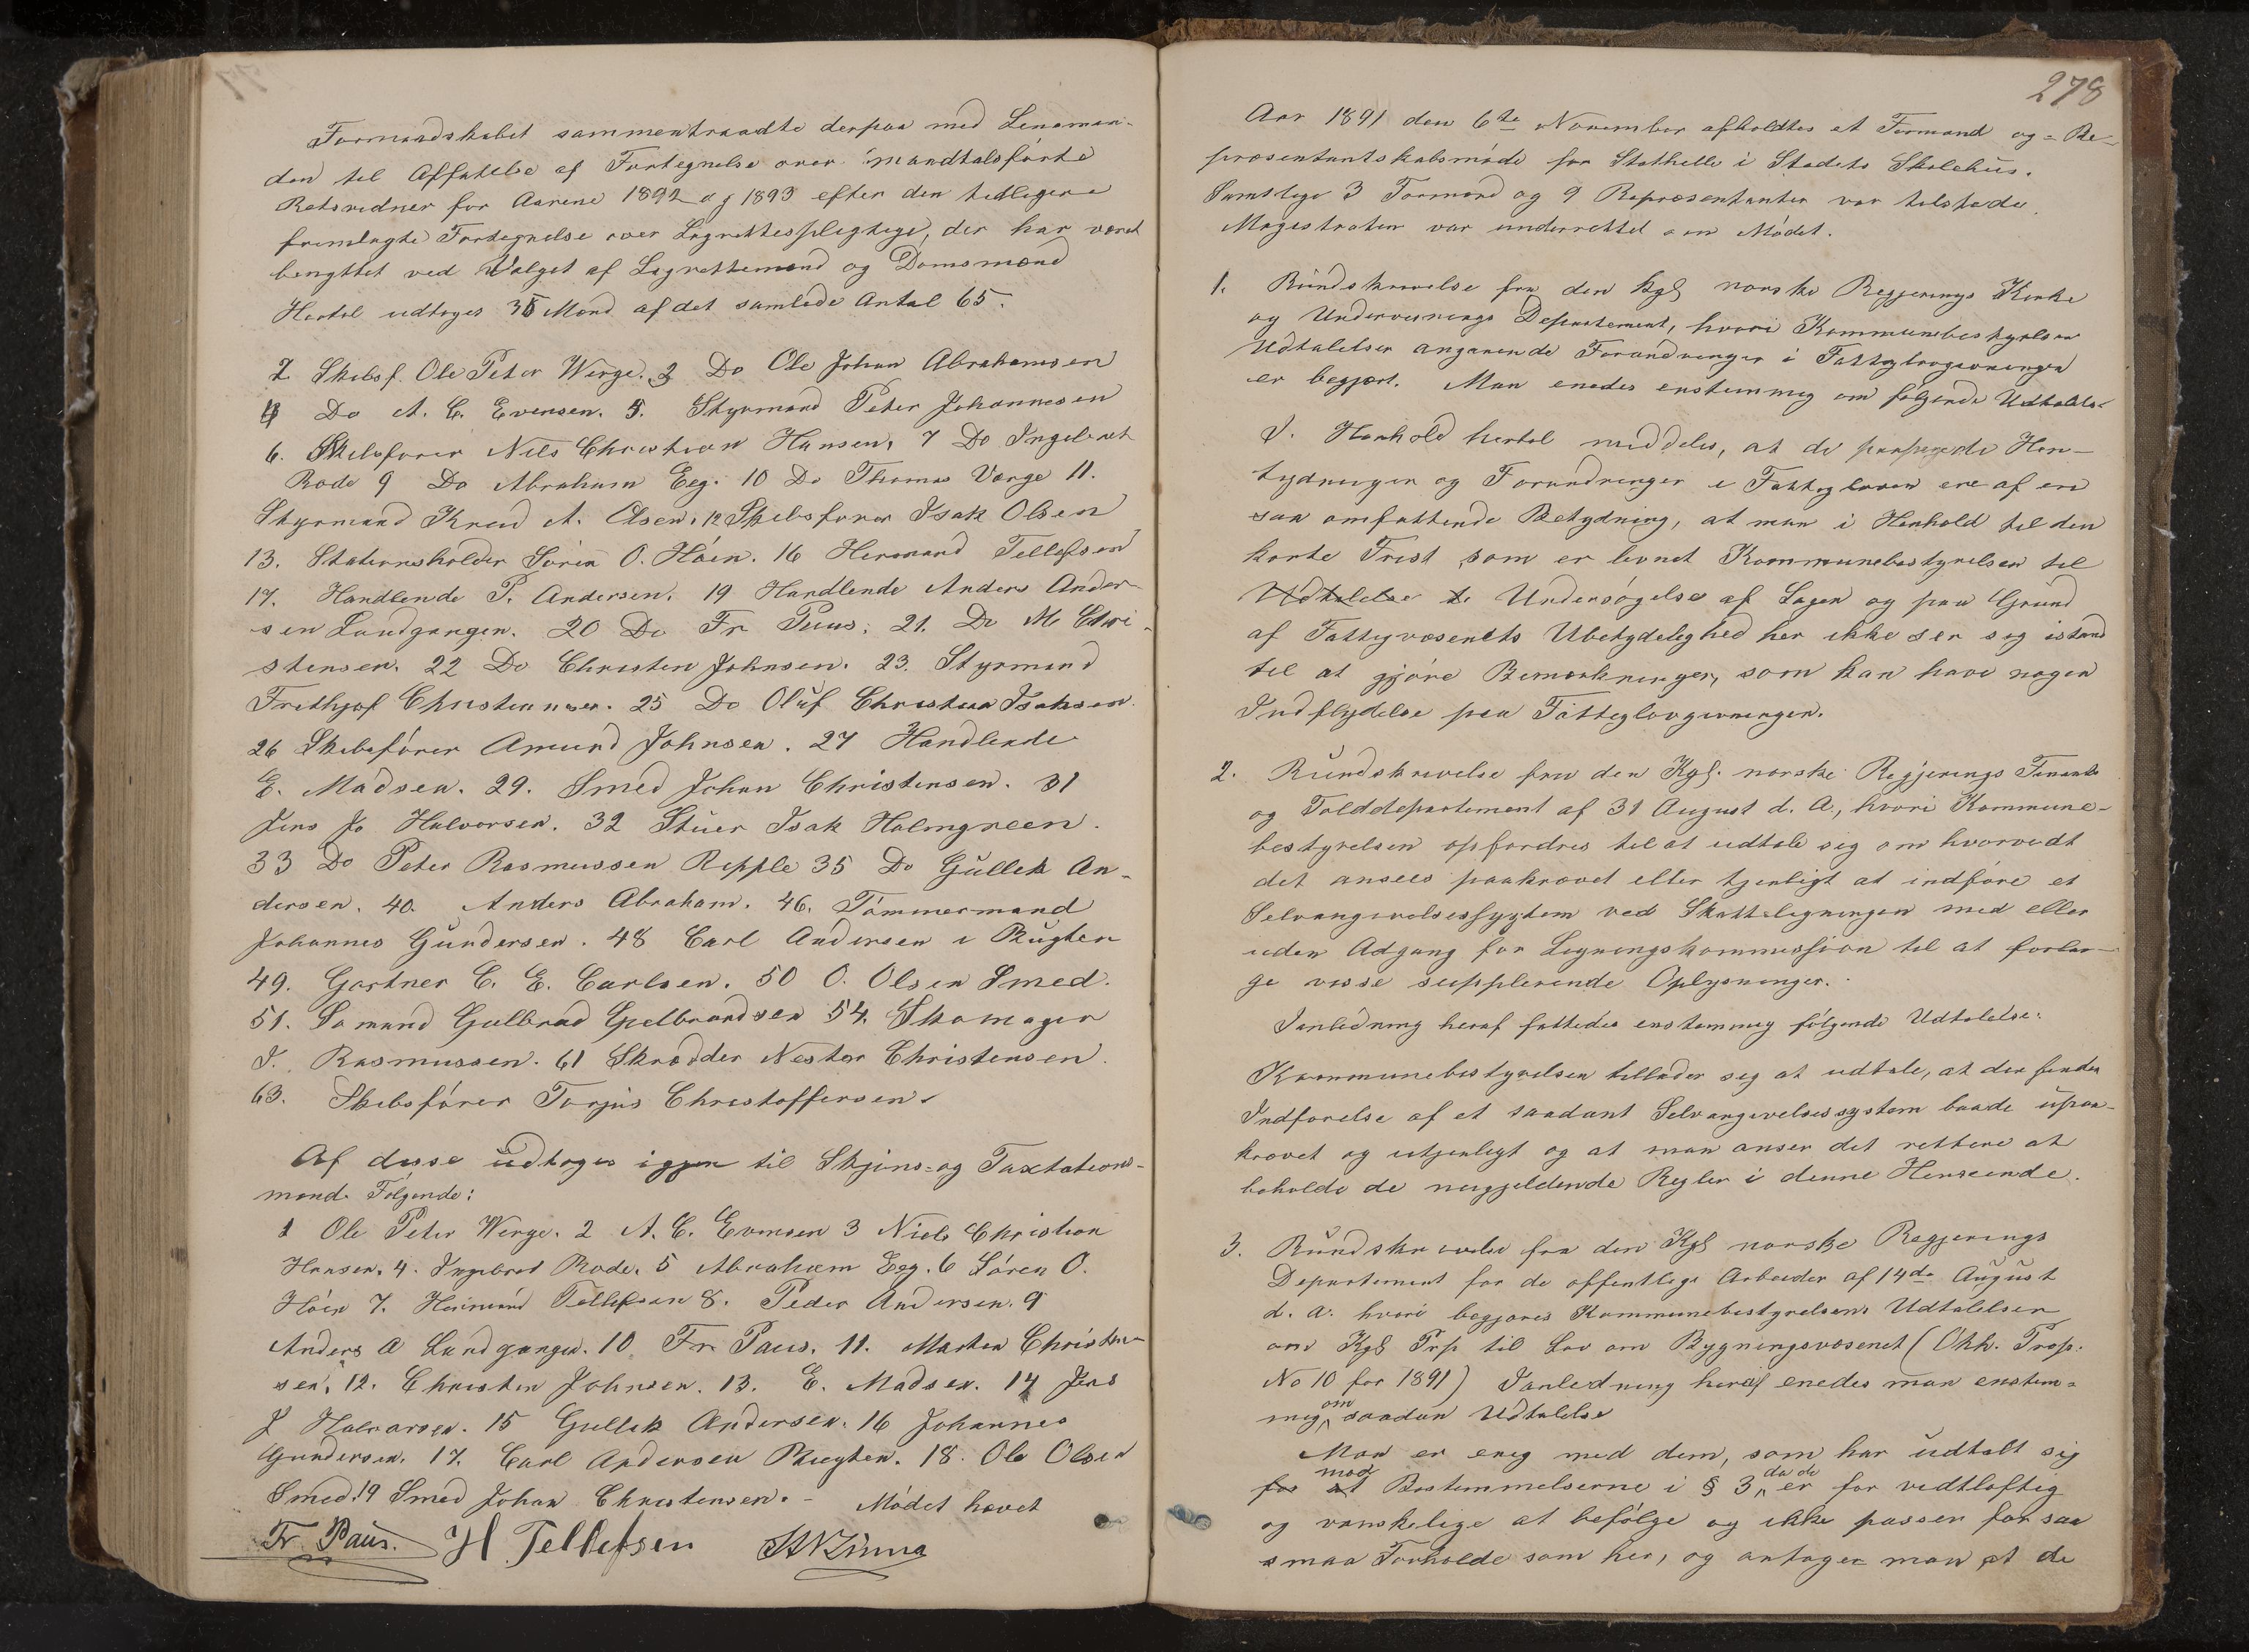 Formandskabet sammentraadte derpaa med Lensman-
den til Affatelse af Fortegnelse over mandtalsførte
Retsvidner for Aarene 1892 og 1893 efter den tidligere
fremlagte Fortegnelse over Lagrettespligtige, der har været
benyttet ved Valget af Lagrettemænd og Domsmænd
Hertil udtoges 35 Mænd af det samlede Antal 65.
2 Skibsf. Ole Peter Werge. 3 Do Ole Johan Abrahamsen
4 Do A. C. Evensen. 5. Styrmand Peter Johannesen
6. Skibsfører Nils Christian Hansen, 7 Do Ingebret
Rode 9 Do Abraham Eeg. 10 Do Thomas Værge 11.
Styrmand Knud A. Olsen. 12 Skibsfører Isak Olsen
13. Stationsholder Søren O. Høien. 16 Hermand Tellefsen
17. Handlende P. Andersen. 19 Handlende Anders Ander-
sen Landgangen. 20 Do Fr Paus. 21. Do M Chri-
stensen. 22 Do Christen Johnsen. 23. Styrmand
Frethjof Christiansen. 25 Do Oluf Christian Isaksen.
26 Skibsfører Amund Johnsen. 27 Handlende
E. Madsen. 29. Smed Johan Christensen. 31
Jens Jo Halvorsen. 32 Stuer Isak Holmgreen.
33 Do Peter Rasmussen Ripple 35 Do Gullek An-
dersen. 40. Anders Abraham. 46. Tømmermand
Johannes Gundersen. 48 Carl Andersen i Rugten
49. Gartner C. E. Carlsen. 50 O. Olsen Smed.
51. Sømand Gulbrand Gulbrandsen 54. Skomager
I. Rasmussen. 61 Skrædder Nestor Christensen.
63. Skibsfører Torjus Christoffersen.
Af disse udtoges igjen til Skjøns- og Taxtations-
mænd Følgende:
1 Ole Peter Werge. 2 A. C. Evensen 3 Niels Christian
Hansen. 4. Ingebret Rode. 5 Abraham Eeg. 6 Søren O.
Høien 7. Hermand Tellefsen 8. Peder Andersen. 9
Anders A Landgangen. 10. Fr. Paus. 11. Morten Christen-
sen. 12. Christen Johnsen. 13. E. Madsen. 14 Jens
J Halvorsen. 15 Gullek Andersen. 16 Johannes
Gundersen. 17. Carl Andersen Rugten. 18. Ole Olsen
Smed. 19 Smed Johan Christensen. - Mødet hævet
Fr. Paus. H Tellefsen
278
Aar 1891 den 6te November afholdtes et Formand og = Re-
præsentantskabsmøde for Stathelle i Stedets Skolehus.
Samtlige 3 Formænd og 9 Repræsentanter var tilstede.
Magistraten var underrettet om Mødet.
1. Rundskrivelse fra den kgl norske Regjerings Kirke
og Undervisnings Departement, hvori Kommunebestyrelsen
Udtalelser angaaende Forandringer i Fattiglovgivningen
er begjært. Man enedes enstemmig om følgende Udtalelse
I Henhold hertil meddeles, at de paapegede Hen-
tydninger og Forandringer i Fattigloven ere af en
saa omfattende Betydning, at man i Henhold til den
korte Frist som er levnet Kommunebestyrelsen til
Udtalelse Undersøgelse af Sagen og paa Grund
af Fattigvæsenets Ubetydelighed her ikke ser sig istand
til at gjøre Bemærkninger, som kan have nogen
Indflydelse paa Fattiglovgivningen.
2. Rundskrivelse fra den Kgl. norske Regjerings Finants
og Tolddepartement af 31 August d. A., hvori Kommune-
bestyrelsen opfordres til at udtale sig om hvorvidt
det ansees paakrævet eller tjenligt at indføre et
Selvangivelsessystem ved Skatteligningen med eller
uden Adgang for Ligningskommission til at forlan-
ge visse supplerende Oplysninger.
Ianledning heraf fattedes enstemmig følgende Udtalelse:
Kommunebestyrelsen tillader sig at udtale, at der finder
Indførelse af et saadant Selvangivelsessystem baade upaa-
krævet og utjenligt og at man anser det rettere at
beholde de nugjeldende Regler i denne Henseende.
3. Rundskrivelse fra den Kgl norske Regjerings
Departement for de offentlige Arbeider af 14de August
d. a. hvori begjæres Kommunebestyrelsens Udtalelser
om Kgl Prp til Lov om Bygningsvæsenet (Oth. Prop.
No 10 for 1891) Ianledning heraf enedes man enstem-
mig om saadan Udtalelse
Man er enig med dem, som har udtalt sig
for at mod Bestemmelserne i § 3, da de er for vidtløftig
og vanskelige at befølge og ikke passer for saa
smaa Forholde som her, og antager man at de